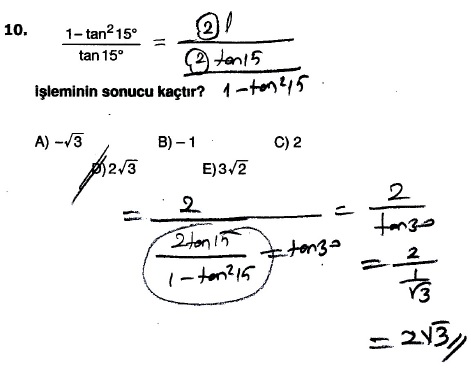 10. (1 – tan² 15°) / (tan 15°) = (2) 1 / ((2) tan15 / (1 – tan²15))
işleminin sonucu kaçtır?
A) –√3 B) – 1 C) 2
D) 2√3 E) 3√2
= 2 / (2tan15 / (1 – tan²15)) = tan30 = 2 / tan30
= 2 / (1/√3)
= 2√3 //